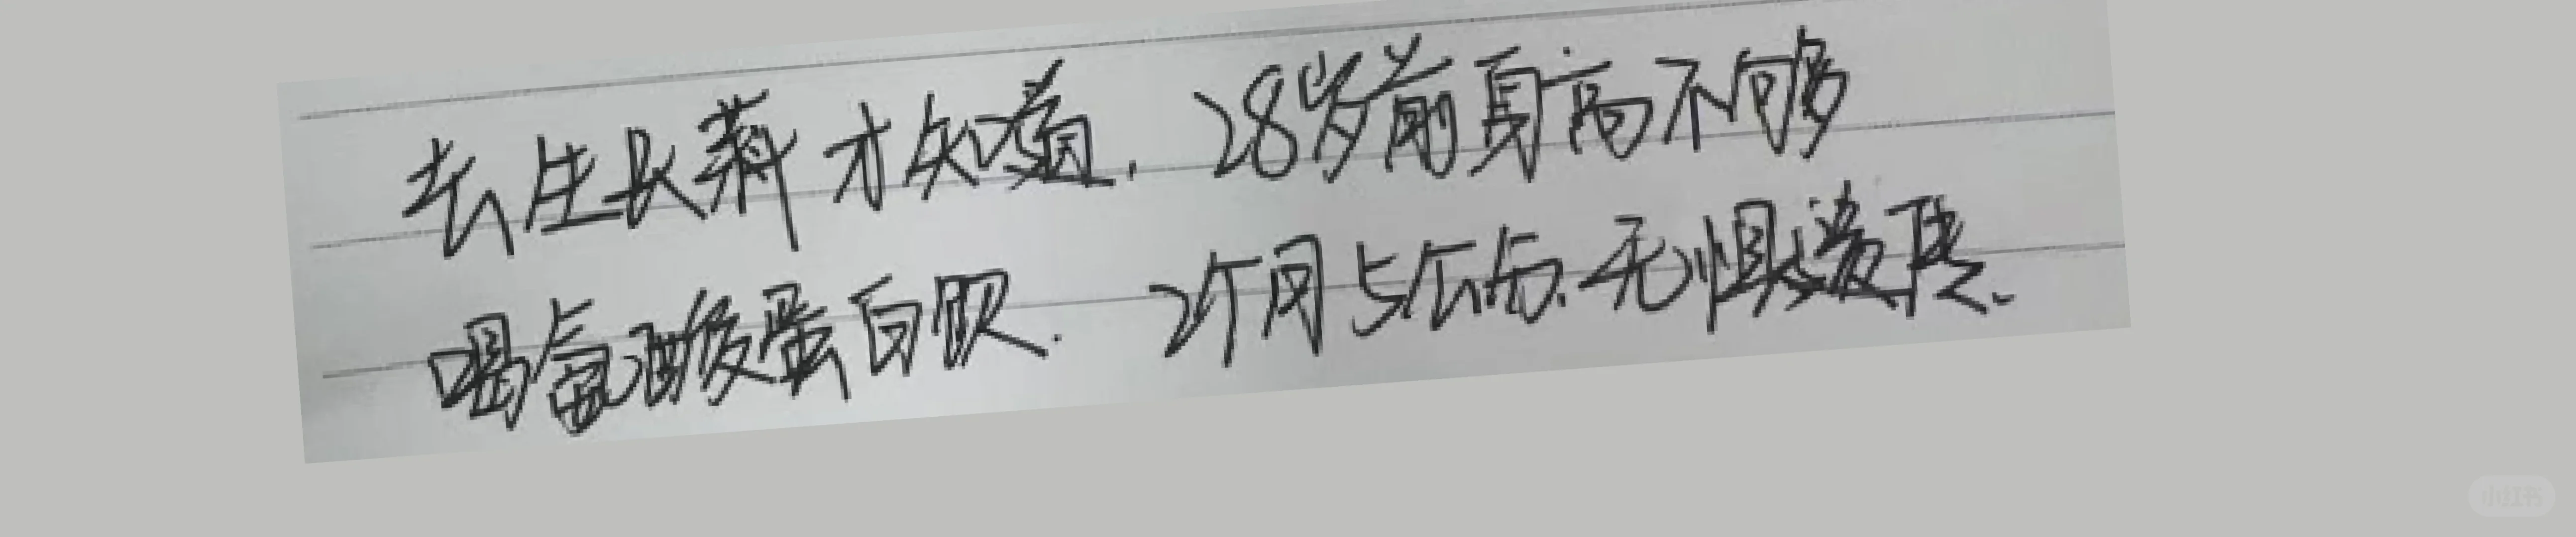 去生长科才知道.28岁前身高不够
喝氨酸蛋白饮.2个月5厘米.无惧遗传.
小红书